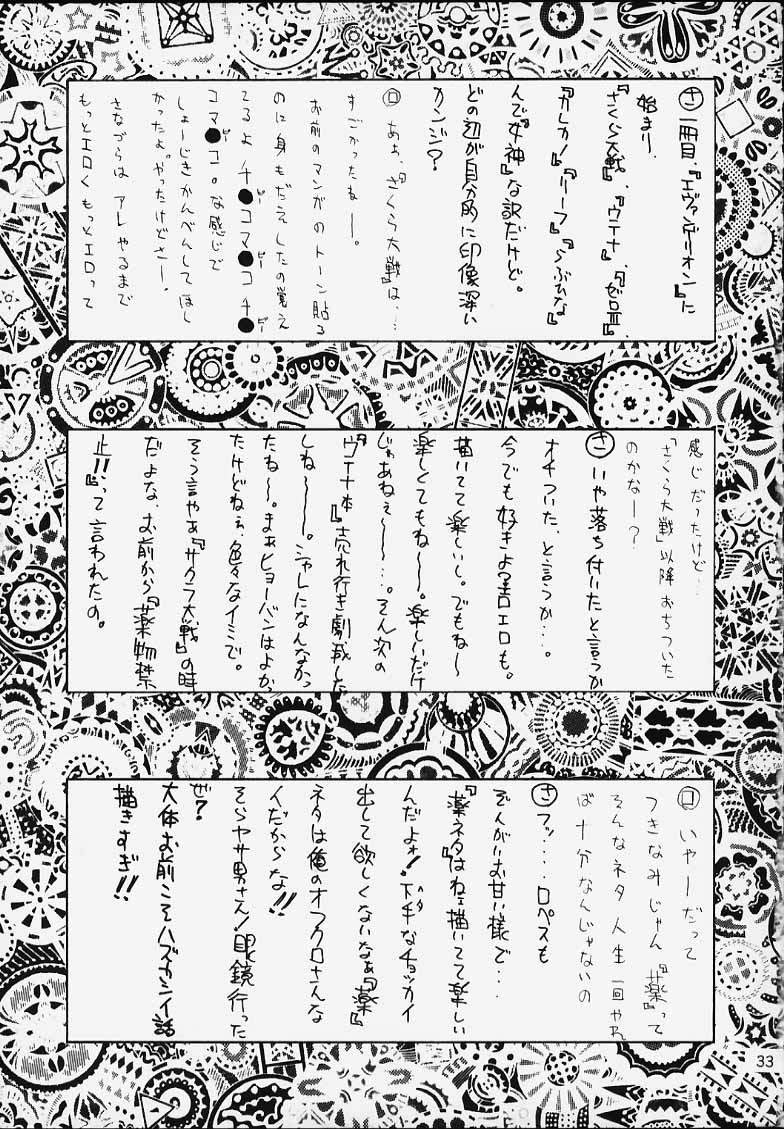 さ 一冊目、『エヴァンゲリオン』に
始まり、
『さくら大戦』、『ウテナ』、『ゼロⅢ』、
『カレカノ』『リーフ』『らぶひな』
んで『女神』な訳だけど。
どの辺が自分的に印像深い
カンジ？
ロ あぁ、『さくら大戦』は…
すごかったねー。
お前のマンガのトーン貼る
のに身もだえしたの覚え
てるよ チ●コマ●コチ●
コマ●コ。な感じで
しょーじきかんべんしてほし
かったよ。やったけどさー、
さなづらは アレ やるまで
もっとエロくもっとエロって
感じだったけど…
『さくら大戦』以降 おちついた
のかなー？
さ いや落ち付いたと言うか
オチついた、と言うか…。
今でも好きよ？エロエロも。
描いてて楽しいし。でもね〜
楽しくてもね〜。楽しいだけ
じゃあねぇ〜〜…。そん次の
『ウテナ本』売れ行き劇減した
しね〜〜。シャレになんなかっ
たね〜。まぁヒョーバンはよかっ
たけどねぇ、色々なイミで。
そう言やぁ『サクラ大戦』の時
だよな、お前から『薬物禁
止!!』って言われたの。
ロ いやーだって
つきなみじゃん『薬』って
そんなネタ人生一回やれ
ば十分なんじゃないの
さ フッ…。ロペスも
ぞんがいお甘い様で…
『薬ネタ』はねェ描いてて楽しい
んだよォ！下手なチョッカイ
出して欲しくないなぁ『薬』
ネタは俺のオフクロさんな
んだからな!!
そらヤサ男さん！眼鏡行った
ぜ？
大体お前こそハズカシイ話
描きすぎ!!
33